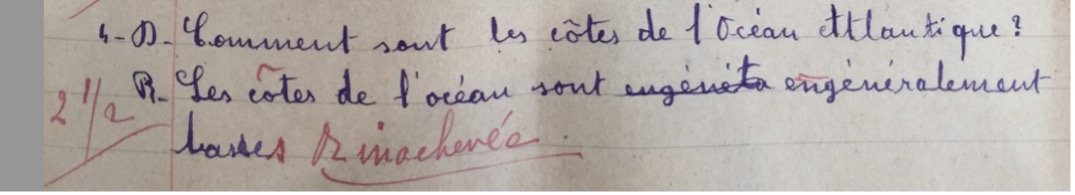 4- D- Comment sont les côtes de l'Océan Atlantique?
2 1/2 R- Les côtes de l'océan sont engénéta engénéralement
basses R inachevée